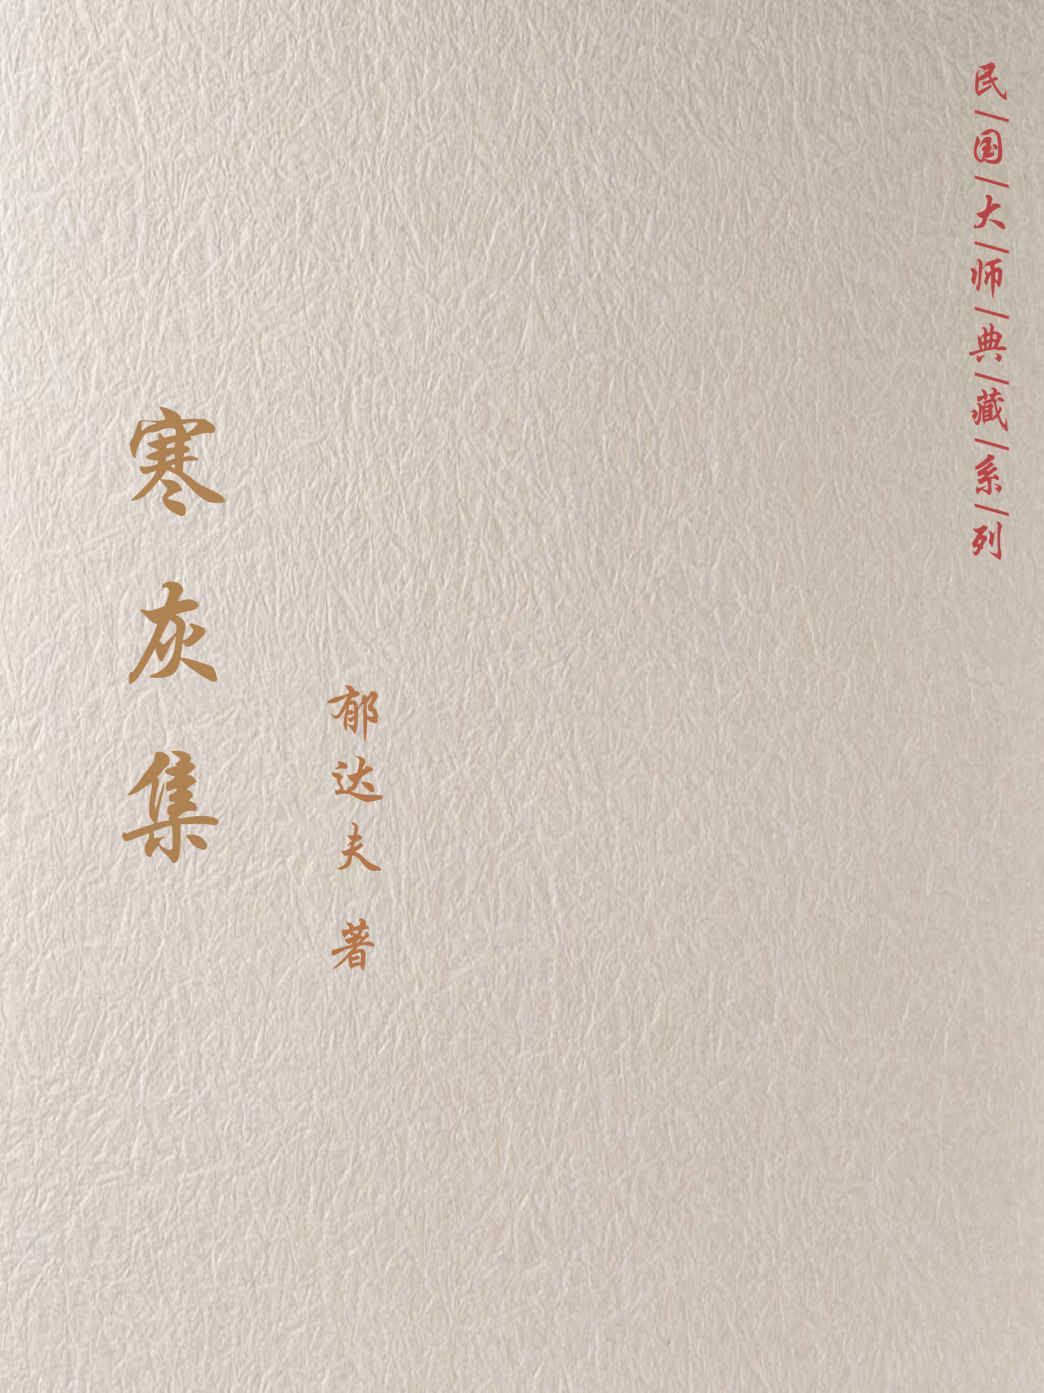 民/国/大/师/典/藏/系/列
郁达夫 著
寒灰集